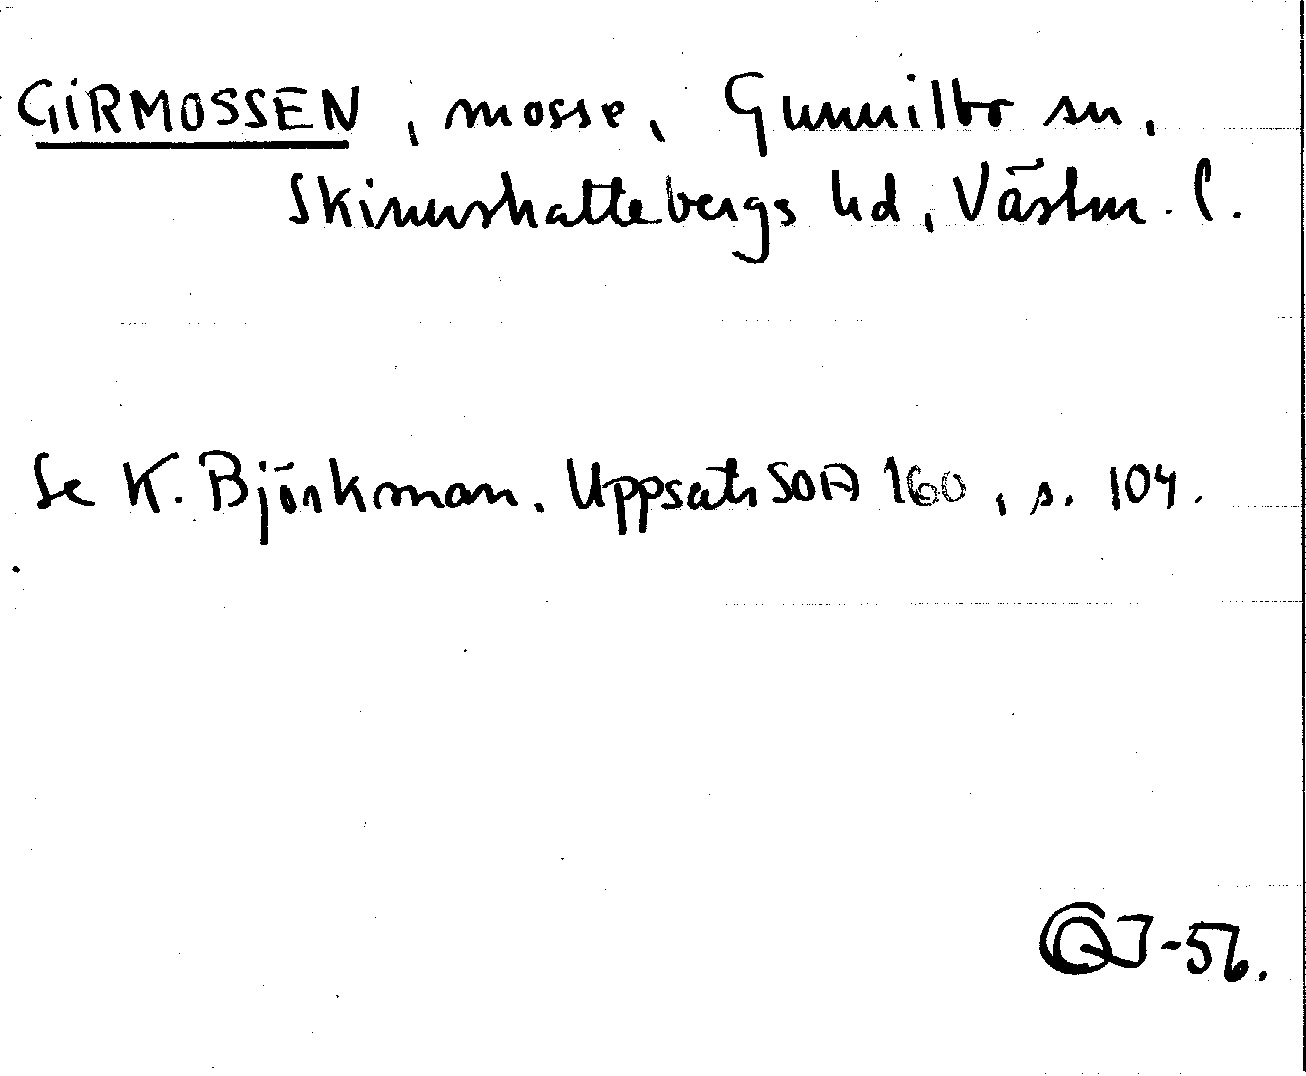 GIRMOSSEN, mosse, Gunnilbo sn,
Skinnskattebergs hd, Västm. l.
Se K. Björkman. Uppsats SOA 160, s. 104.
-56.